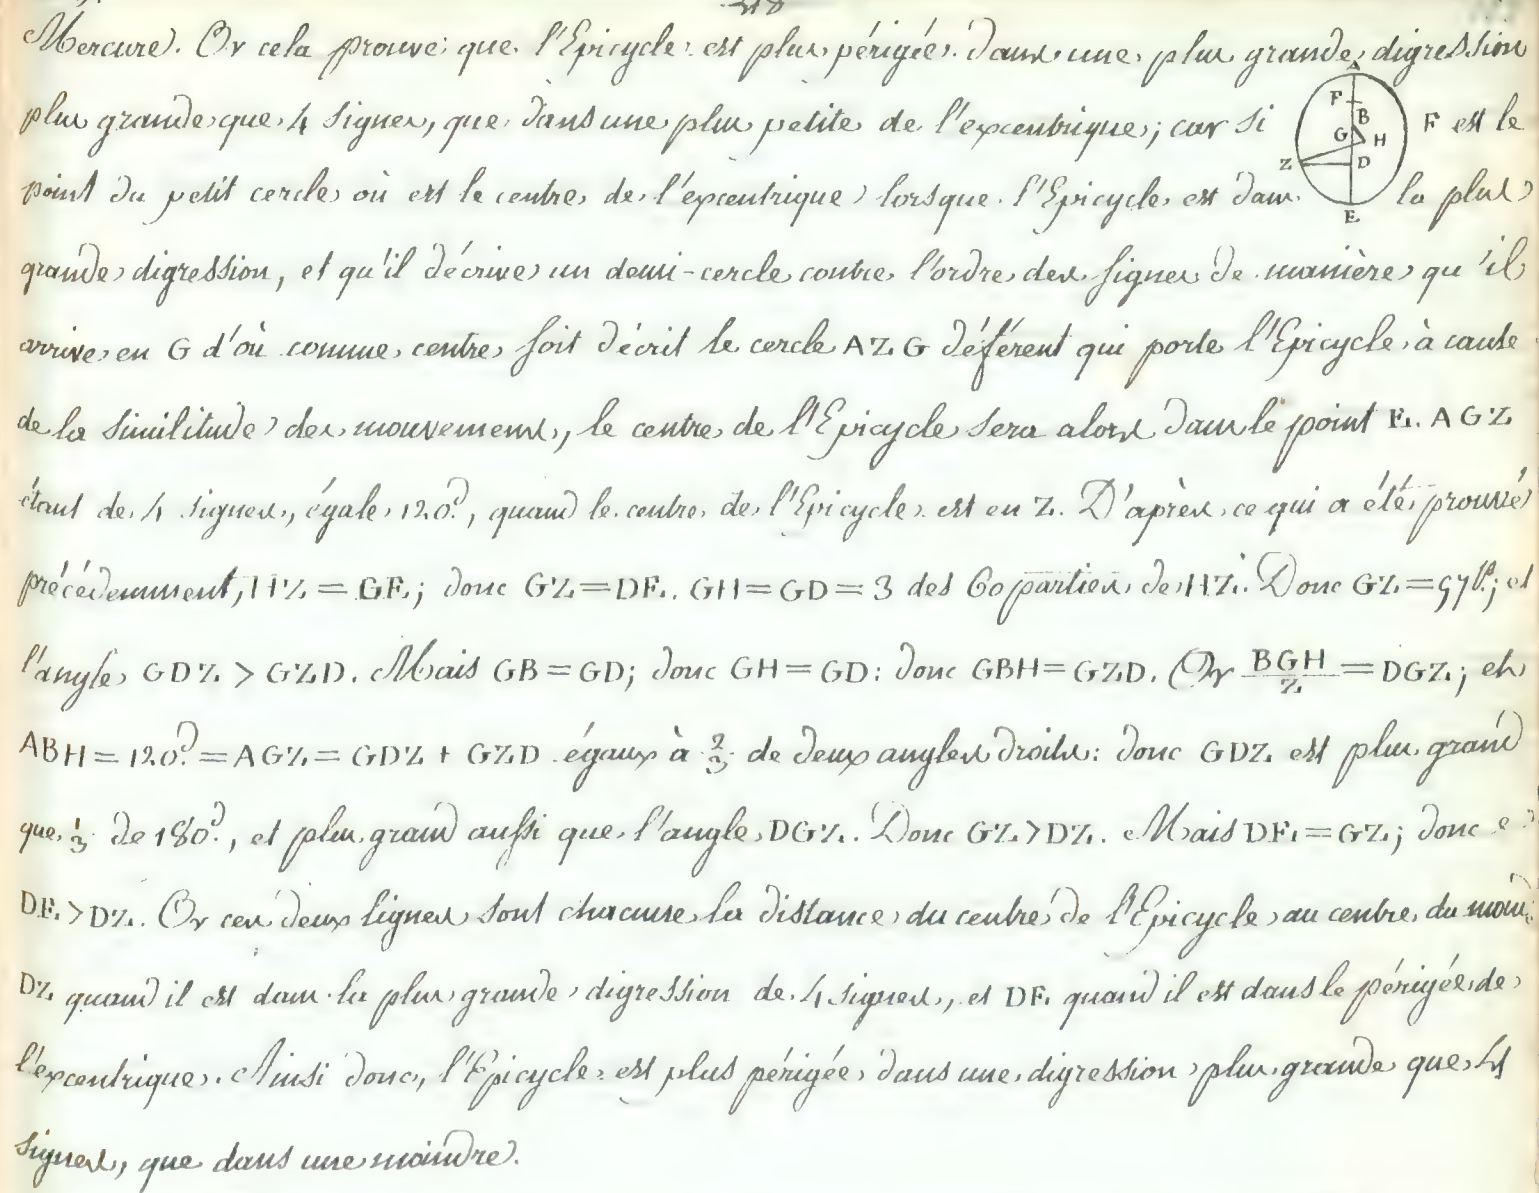 318
Mercure. Or cela prouve que l'Epicycle est plus périgée dans une plus grande digression
plus grande que 4 signes, que dans une plus petite de l'excentrique; car si F est le
A
F
B
G H
Z D
E
point du petit cercle où est le centre de l'excentrique lorsque l'Epicycle est dans la plus
grande digression, et qu'il décrive un demi-cercle contre l'ordre des signes de manière qu'il
arrive en G d'où comme centre soit décrit le cercle AZG déférent qui porte l'Epicycle, à cause
de la similitude des mouvemens, le centre de l'Epicycle sera alors dans le point E. AGZ
étant de 4 signes, égale 120.d, quand le centre de l'Epicycle est en Z. D'après ce qui a été prouvé
précédemment, HZ = GE; donc GZ = DE. GH = GD = 3 des 60 parties de HZ. Donc GZ = 57p.; et
l'angle GDZ > GZD. Mais GB = GD; donc GH = GD: donc GBH = GZD. Or BGH/2 = DGZ; et
ABH = 120.d = AGZ = GDZ + GZD égaux à 2/3 de deux angles droits: donc GDZ est plus grand
que 1/3 de 180.d, et plus grand aussi que l'angle DGZ. Donc GZ > DZ. Mais DE = GZ; donc
DE > DZ. Or ces deux lignes sont chacune la distance du centre de l'Epicycle au centre du
DZ quand il est dans la plus grande digression de 4 signes, et DE quand il est dans le périgée de
l'excentrique. Ainsi donc, l'Epicycle est plus périgée dans une digression plus grande que 4
signes, que dans une moindre.